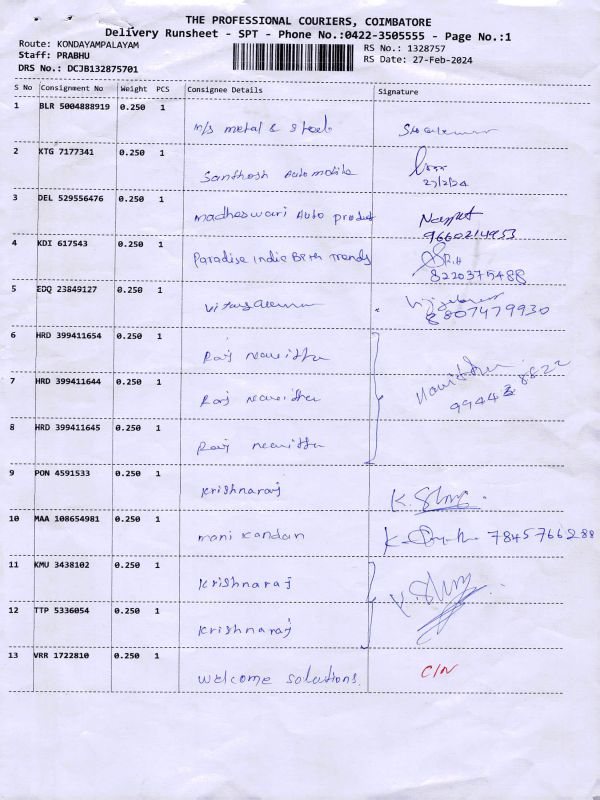 THE PROFESSIONAL COURIERS, COIMBATORE
Delivery Runsheet - SPT - Phone No.:0422-3505555 - Page No.:1
Route: KONDAYAMPALAYAM
RS No.: 1328757
Staff: PRABHU
RS Date: 27-Feb-2024
DRS No.: DCJB132875701
S No Consignment No Weight PCS Consignee Details Signature
1 BLR 5004888919 0.250 1
m/s metal & steels
2 KTG 7177341 0.250 1
Santhosh Automobile
27/2/24
3 DEL 529556476 0.250 1
madheswari Auto product
9660214953
4 KDI 617543 0.250 1
Paradise Indie Trends
8220375488
5 EDQ 23849127 0.250 1
8807479930
6 HRD 399411654 0.250 1
Raj
7 HRD 399411644 0.250 1
Raj
8 HRD 399411645 0.250 1
Raj
9 PON 4591533 0.250 1
Krishnaraj
10 MAA 108654981 0.250 1
mani kandan
7845766288
11 KMU 3438102 0.250 1
Krishnaraj
12 TTP 5336054 0.250 1
Krishnaraj
13 VRR 1722810 0.250 1
welcome solutions.
C/N